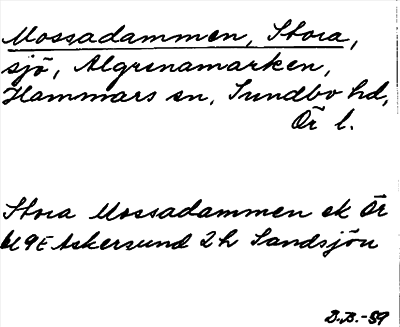 Mossadammen, Stora,
sjö, Algrenamarken,
Hammars sn, Sundbo hd,
Ör l.
Stora Mossadammen ek Ör
9E Askersund 2h Sandsjön
B.B.-59